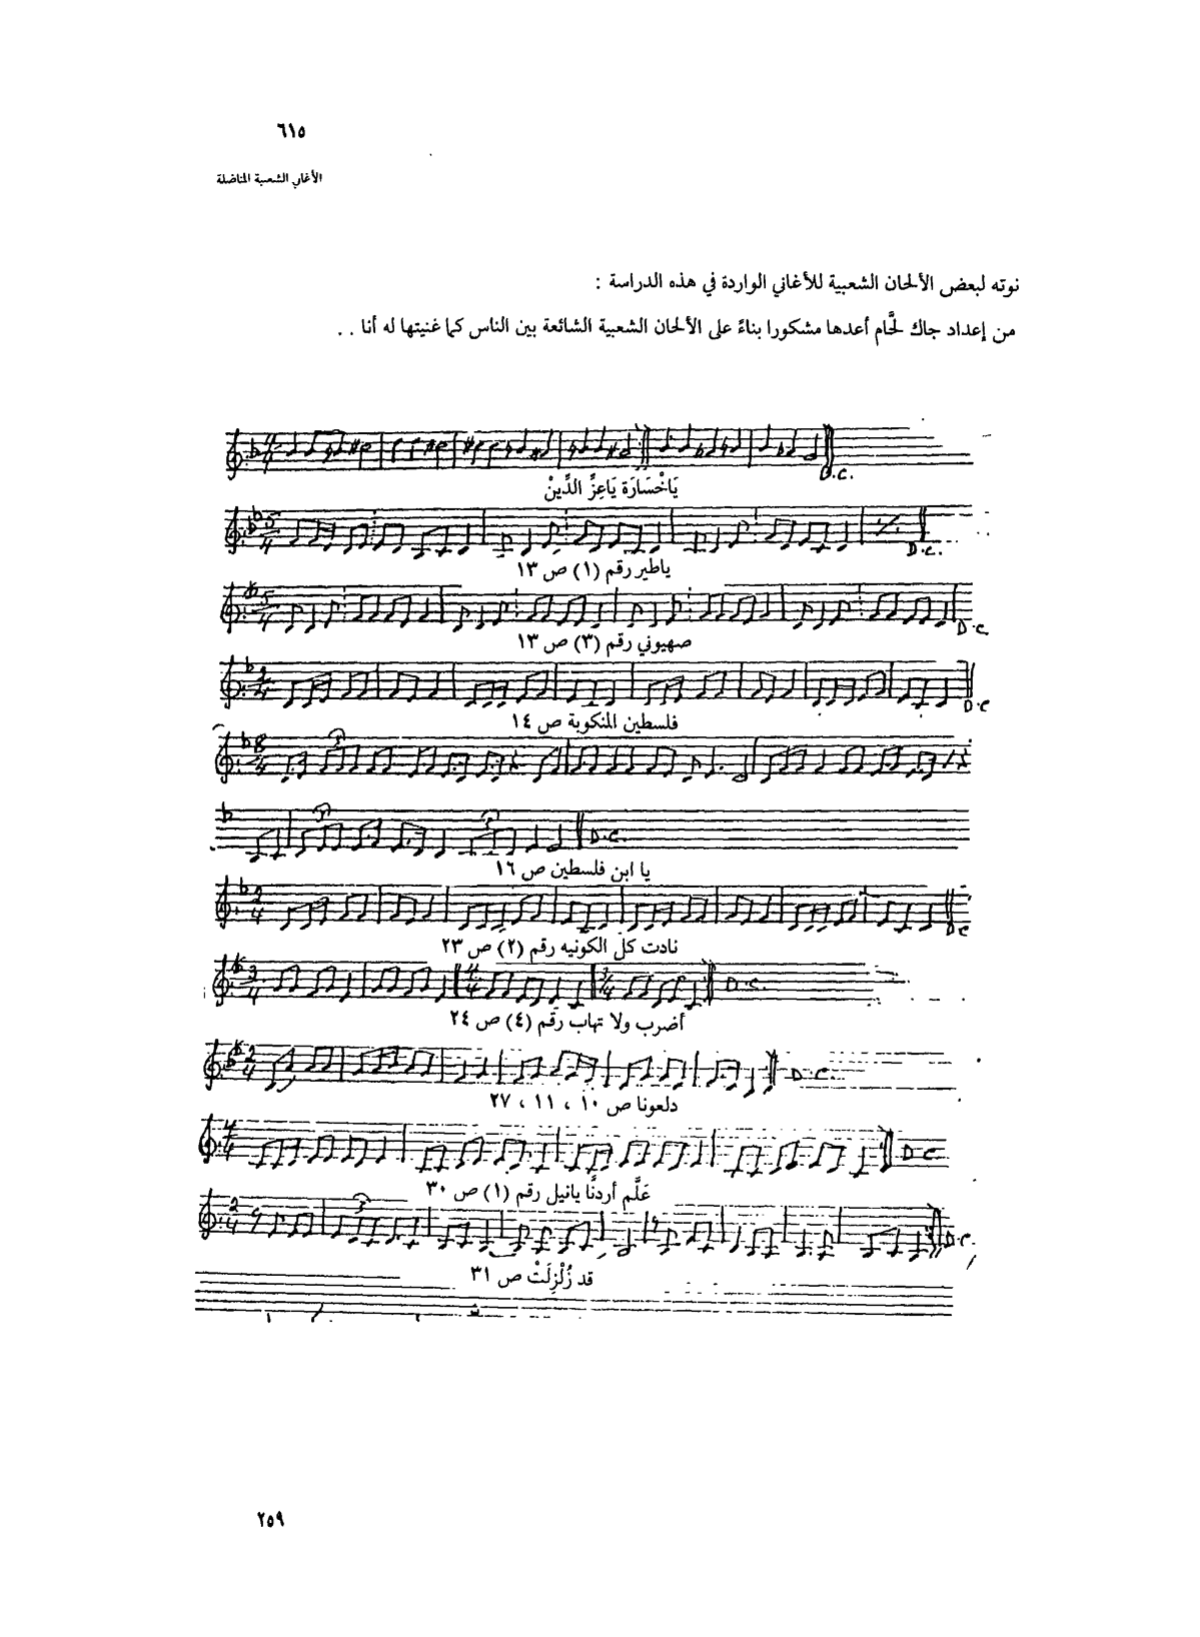 ٦١٥
الأغاني الشعبية المناضلة
نوته لبعض الألحان الشعبية للأغاني الواردة في هذه الدراسة :
من إعداد جاك لحَّام أعدها مشكورا بناءً على الألحان الشعبية الشائعة بين الناس كما غنيتها له أنا . .
D.C.
يَاخْسَارَة يَاعِزَّ الدِّينْ
D.C.
ياطير رقم (١) ص ١٣
D.C
صهيوني رقم (٣) ص ١٣
D.C
فلسطين المنكوبة ص ١٤
D.C.
يا ابن فلسطين ص ١٦
D.C
نادت كل الكونيه رقم (٢) ص ٢٣
D.C.
أضرب ولا تهاب رقم (٤) ص ٢٤
D.C.
دلعونا ص ١٠ ، ١١ ، ٢٧
D.C.
عَلَّم أردنَّا يانيل رقم (١) ص ٣٠
D.C.
قد زُلْزِلَتْ ص ٣١
٢٥٩